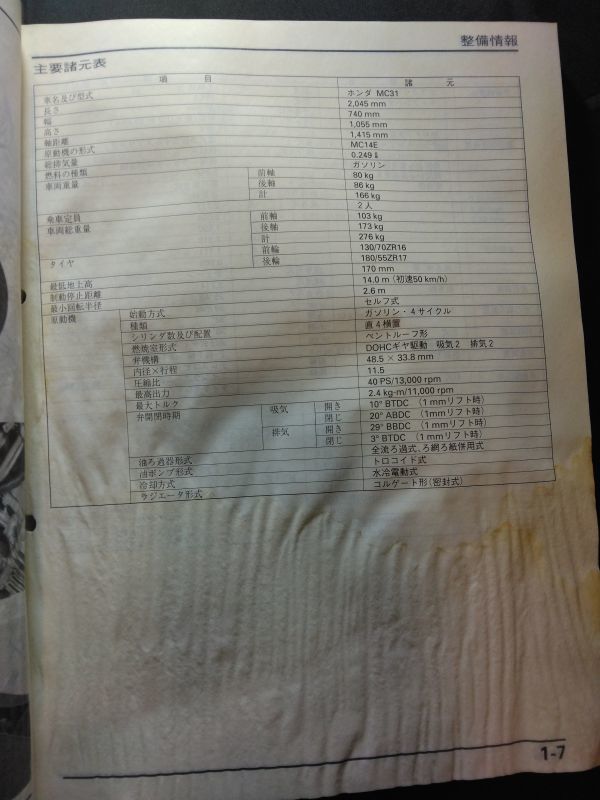 整備情報
主要諸元表
項 目 諸 元
車名及び型式 ホンダ MC31
長さ 2,045 mm
幅 740 mm
高さ 1,055 mm
軸距離 1,415 mm
原動機の形式 MC14E
総排気量 0.249 ℓ
燃料の種類 ガソリン
車両重量 前軸 80 kg
後軸 86 kg
計 166 kg
乗車定員 2 人
車両総重量 前軸 103 kg
後軸 173 kg
計 276 kg
タイヤ 前輪 130/70ZR16
後輪 180/55ZR17
最低地上高 170 mm
制動停止距離 14.0 m (初速50 km/h)
最小回転半径 2.6 m
原動機 始動方式 セルフ式
種類 ガソリン・4サイクル
シリンダ数及び配置 直4横置
燃焼室形式 ペントルーフ形
弁機構 DOHCギヤ駆動 吸気2 排気2
内径×行程 48.5 × 33.8 mm
圧縮比 11.5
最高出力 40 PS/13,000 rpm
最大トルク 2.4 kg-m/11,000 rpm
弁開閉時期 吸気 開き 10° BTDC (1mmリフト時)
閉じ 20° ABDC (1mmリフト時)
排気 開き 29° BBDC (1mmリフト時)
閉じ 3° BTDC (1mmリフト時)
油ろ過器形式 全流ろ過式、ろ網ろ紙併用式
油ポンプ形式 トロコイド式
冷却方式 水冷電動式
ラジエータ形式 コルゲート形(密封式)
1-7